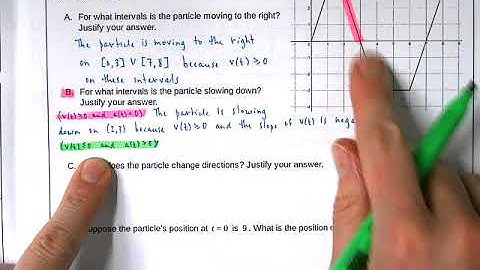 A. For what intervals is the particle moving to the right?
Justify your answer.
The particle is moving to the right
on [0,3] V [7,8] because v(t) ≥ 0
on these intervals
B. For what intervals is the particle slowing down?
Justify your answer.
(v(t)≥0 and a(t)<0) The particle is slowing
down on (2,3) because v(t)≥0 and the slope of v(t) is nega
(v(t)≤0 and a(t)>0)
C. does the particle change directions? Justify your answer.
uppose the particle's position at t = 0 is 9. What is the position